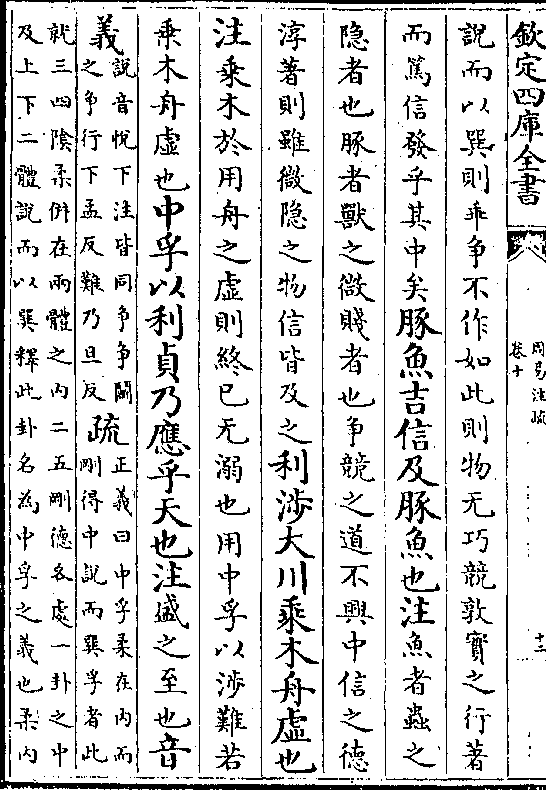 欽定四庫全書
周易注疏
卷十
十三
說而以巽則乖争不作如此則物无巧競敦實之行著
而篤信發乎其中矣豚魚吉信及豚魚也注魚者蟲之
隐者也豚者獸之微賤者也争競之道不興中信之德
淳著則雖微隐之物信皆及之利涉大川乘木舟虛也
注乘木於用舟之虛則終已无溺也用中孚以涉難若
乗木舟虛也中孚以利貞乃應乎天也注盛之至也音
義說音悅下注皆同争争鬬
之争行下孟反難乃旦反疏正義曰中孚柔在内而
剛得中說而巽孚者此
就三四陰柔併在兩體之内二五剛德各處一卦之中
及上下二體說而以巽釋此卦名為中孚之義也柔内